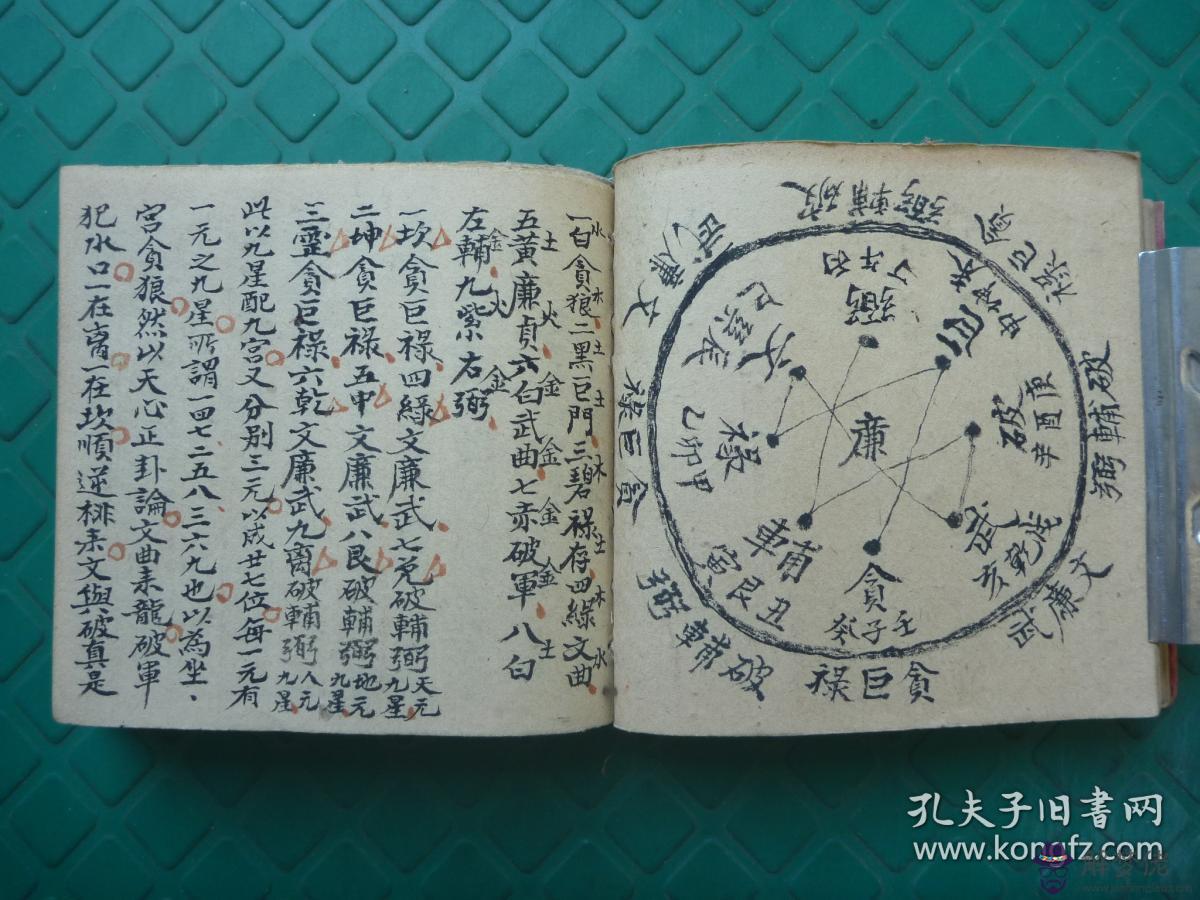 一白貪狼二黑巨門三碧祿存四綠文曲
五黃廉貞六白武曲七赤破軍八白
左輔九紫右弼
一坎貪巨祿四綠文廉武七兌破輔弼天元九星
二坤貪巨祿五中文廉武八艮破輔弼地元九星
三震貪巨祿六乾文廉武九离破輔弼人元九星
此以九星配九宮又分别三元以成廿七位每一元有
一元之九星所謂一四七二五八三六九也以為坐
宮貪狼然以天心正卦論文曲来龍破軍
犯水口一在离一在坎順逆排来文與破真是
水 木 土 土 木 土 木 水
土 火 金 金 金 金 土
金 火 金
弼輔破
武廉文
祿巨貪
破輔弼
武廉文
破輔弼
貪巨祿
弼
巨
文
巳巽辰
祿
乙卯甲
廉
破
辛酉庚
武
亥乾戌
輔
寅艮丑
貪
癸子壬
孔夫子旧书网
www.kongfz.com
解梦佬